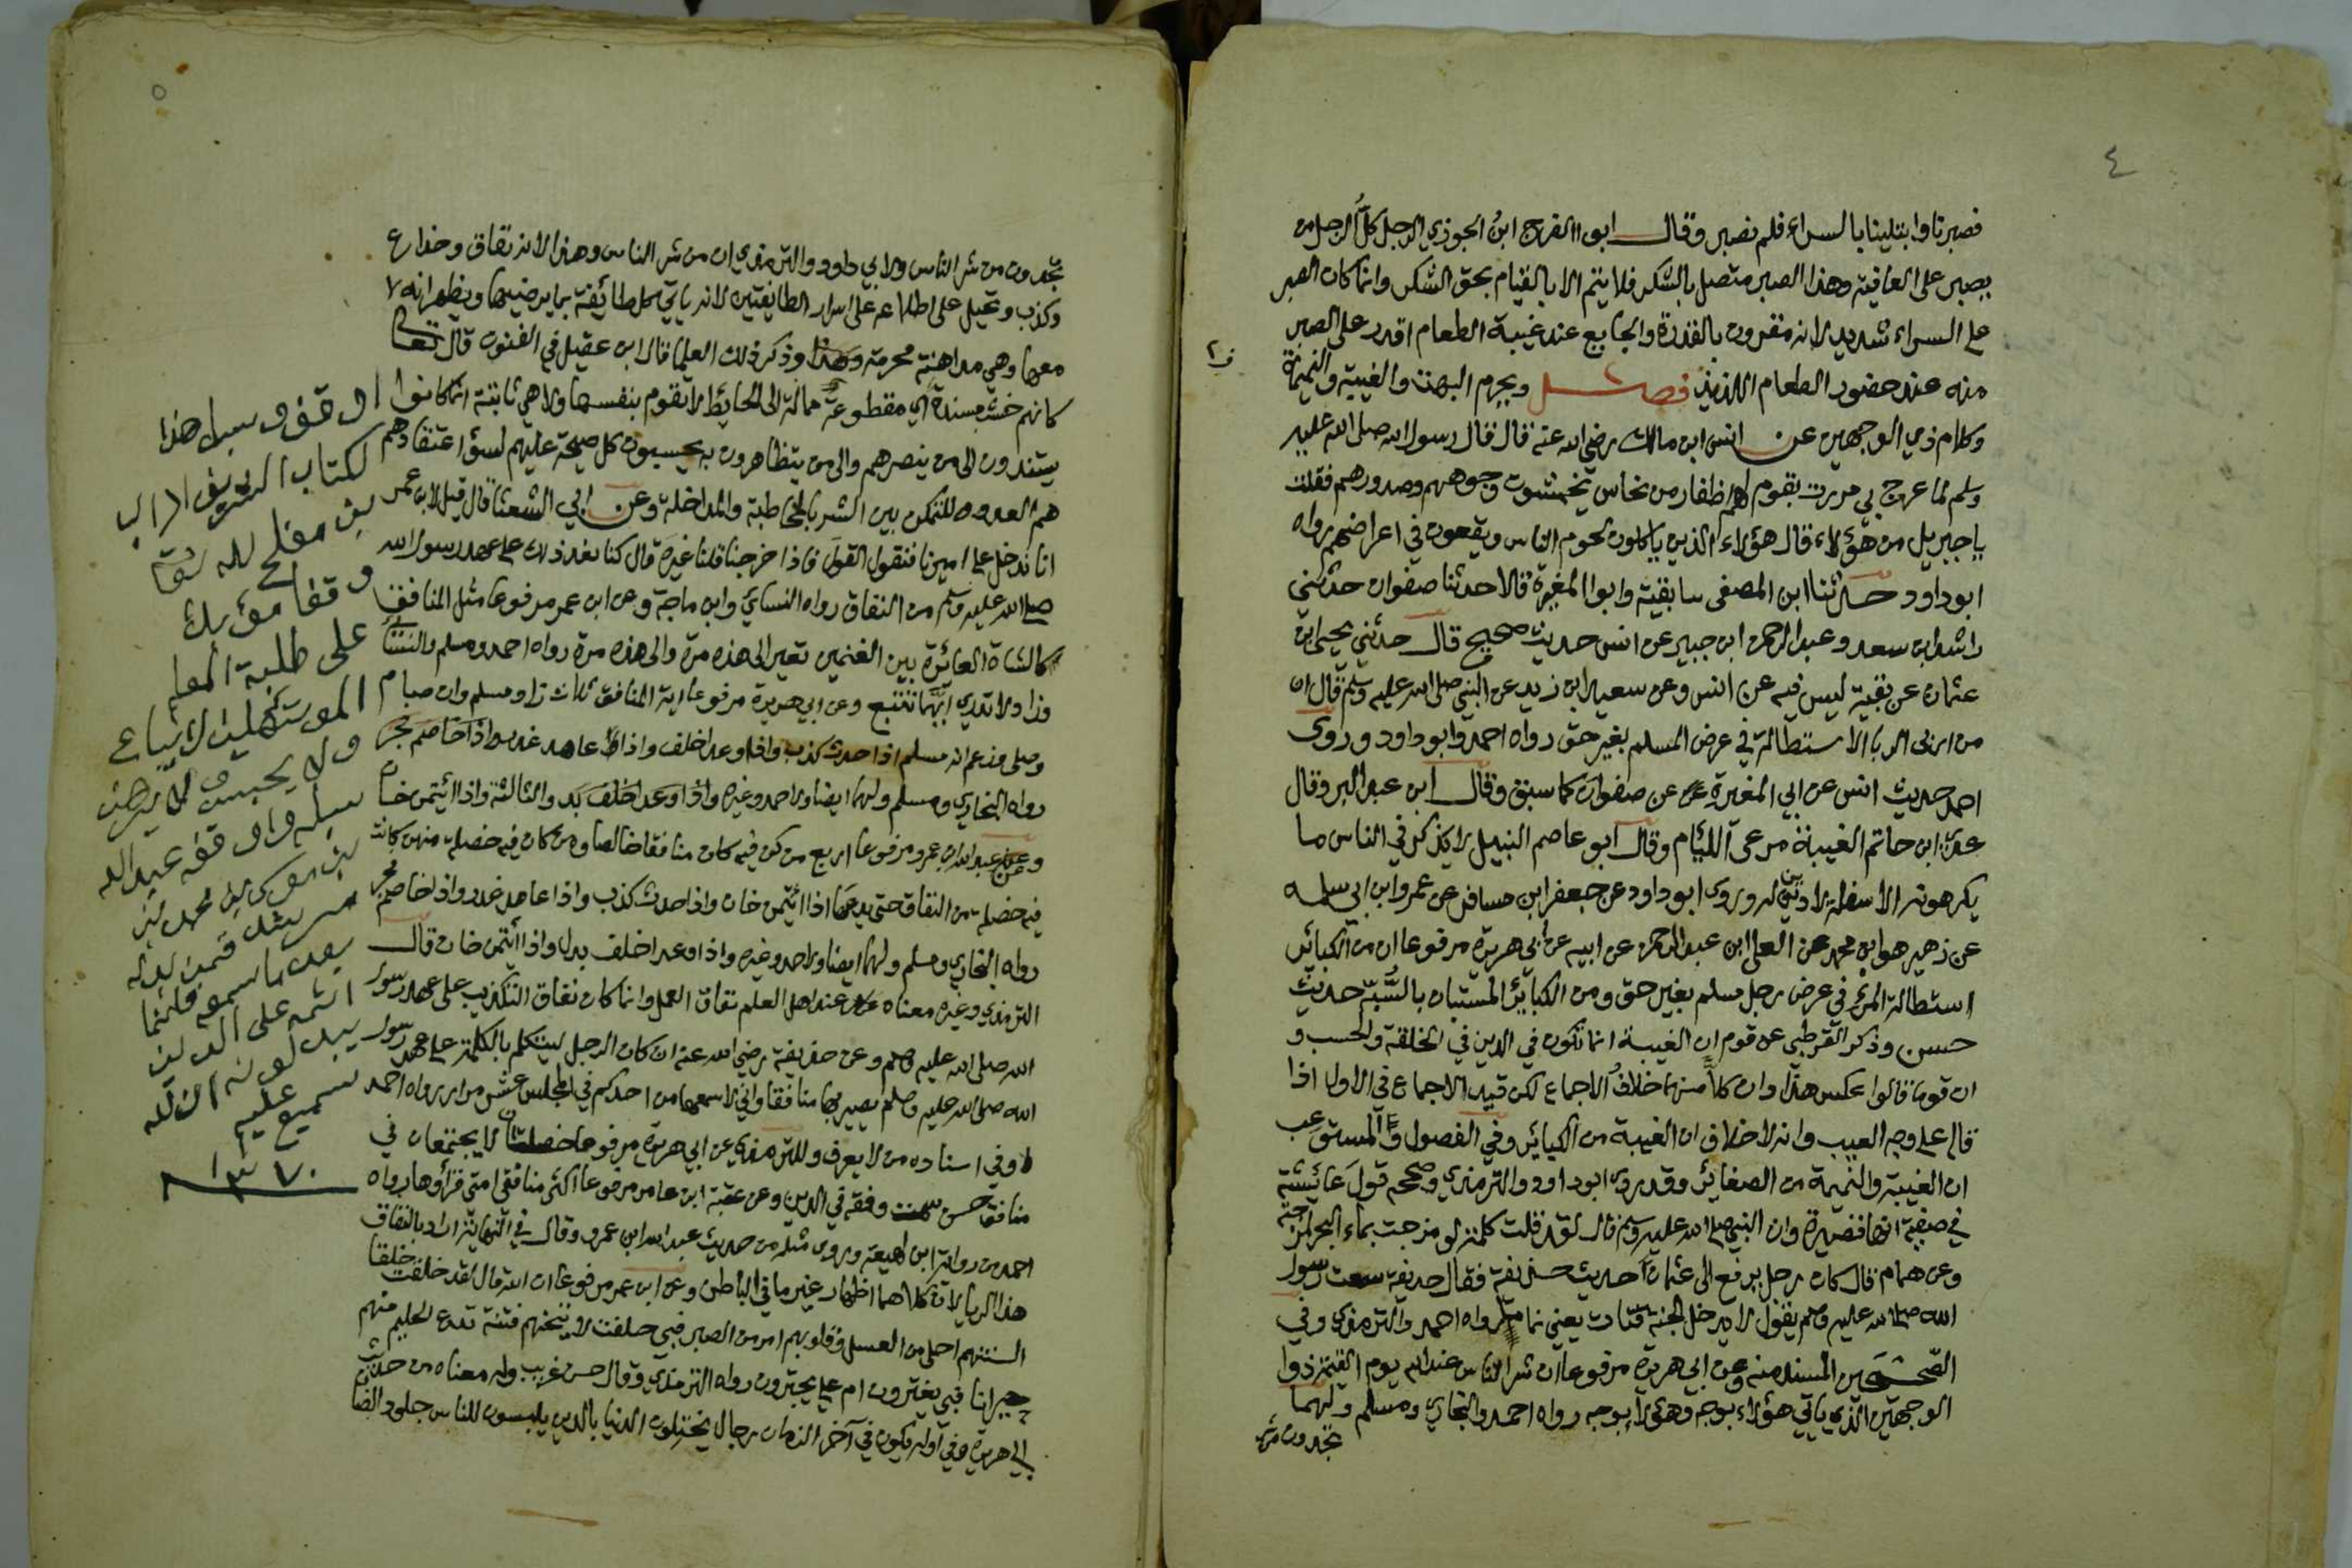 ٤
فصبرنا وابتلينا بالسراء فلم نصبر وقال ابو الفرج ابن الجوزي الرجل كل الرجل من
يصبر على العافية وهذا الصبر متصل بالشكر فلا يتم الا بالقيام بحق الشكر وانما كان الصبر
على السراء شديد لانه مقرون بالقدرة والجايع عند غيبة الطعام اقدر على الصبر
منه عند حضور الطعام اللذيذ فصل ويحرم البهت والغيبة والنميمة
وكلام ذي الوجهين عن انس ابن مالك رضي الله عنه قال قال رسول الله صلى الله عليه
وسلم لما عرج بي مررت بقوم لهم اظفار من نحاس يخمشون وجوههم وصدورهم فقلت
يا جبريل من هؤلاء قال هؤلاء الذين ياكلون لحوم الناس ويقعون في اعراضهم رواه
ابو داود حدثنا ابن المصفى سا بقية وابو المغيرة قالا حدثنا صفوان حدثني
راشد ابن سعد وعبد الرحمن ابن جبير عن انس حديث صحيح قال حدثني يحيى ابن
عثمان عن بقية ليس فيه عن انس وعن سعيد ابن زيد عن النبي صلى الله عليه وسلم قال ان
من اربى الربا الاستطالة في عرض المسلم بغير حق رواه احمد وابو داود وروى
احمد حديث انس عن ابي المغيرة عن صفوان كما سبق وقال ابن عبد البر وقال
عدي ابن حاتم الغيبة مرعى اللئام وقال ابو عاصم النبيل لا يذكر في الناس ما
يكرهونه الا سفلة لا دين له وروى ابو داود عن جعفر ابن مسافر عن عمرو ابن ابي سلمه
عن زهير هو ابن محمد عن العلا ابن عبد الرحمن عن ابيه عن ابي هريرة مرفوعا ان من اكبر الكبائر
استطالة المرء في عرض رجل مسلم بغير حق ومن الكبائر المستبان بالسبة حديث
حسن وذكر القرطبي عن قوم ان الغيبة انما تكون في الدين في الخلقة والحسب و
ان قوما قالوا عكس هذا وان كلا منهما خلاف الاجماع لكن قيد الاجماع في الاول اذا
قال على وجه العيب وانه لا خلاف ان الغيبة من الكبائر وفي الفصول والمستوعب
ان الغيبة والنميمة من الصغائر وقد روى ابو داود والترمذي وصححه قول عائشة
في صفية انها قصيرة وان النبي صلى الله عليه وسلم قال لقد قلت كلمة لو مزجت بماء البحر لمزجته
وعن همام قال كان رجل يرفع الى عثمان حديث حذيفة فقال حذيفة سمعت رسول
الله صلى الله عليه وسلم يقول لا يدخل الجنة قتات يعني نماما رواه احمد والترمذي وفي
الصحيحين المسند منه وعن ابي هريرة مرفوعا ان شر الناس عند الله يوم القيمة ذوا
الوجهين الذي ياتي هؤلاء بوجه وهؤلاء بوجه رواه احمد والبخاري ومسلم ولهما
تجدون من
٥
تجدون من شر الناس ولابي داود والترمذي ان من شر الناس وهذا لانه نفاق وخداع
وكذب وتحيل على اطلاعه على اسرار الطايفتين لانه ياتي كل طائفة بما يرضيها ويظهر انه
معها وهي مداهنة محرمة وذكر ذلك العلما قال ابن عقيل في الفنون قال تعالى
كانهم خشب مسندة اي مقطوعة ممالة الى الحائط لا تقوم بنفسها ولا هي ثابتة انما كانوا
يستندون الى من ينصرهم والى من يتظاهرون به يحسبون كل صيحة عليهم لسؤ اعتقادهم
هم العدو للتمكن بين الشر بالمخاطبة والمداخلة وعن ابي الشعثا قال قيل لابن عمر
انا ندخل على اميرنا فنقول القول فاذا خرجنا قلنا غيره قال كنا نعد ذلك على عهد رسول الله
صلى الله عليه وسلم من النفاق رواه النسائي وابن ماجة وعن ابن عمر مرفوعا مثل المنافق
كالشاة العائرة بين الغنمين تعير الى هذه مرة والى هذه مرة رواه احمد ومسلم والنسائي
وزاد لا تدري ايهما تتبع وعن ابي هريرة مرفوعا اية المنافق ثلاث زاد مسلم وان صام
وصلى وزعم انه مسلم اذا حدث كذب واذا وعد اخلف واذا عاهد غدر واذا خاصم فجر
رواه البخاري ومسلم ولهما ايضا ولاحمد وغيره واذا وعد اخلف بدل والثالثة واذا ائتمن خان
وعن عبد الله ابن عمرو مرفوعا اربع من كن فيه كان منافقا خالصا ومن كان فيه خصلة منهن كانت
فيه خصلة من النفاق حتى يدعها اذا ائتمن خان واذا حدث كذب واذا عاهد غدر واذا خاصم فجر
رواه البخاري ومسلم ولهما ايضا ولاحمد وغيره واذا وعد اخلف بدل واذا ائتمن خان قال
الترمذي وغيره معناه عند اهل العلم نفاق العمل وانما كان نفاق التكذيب على عهد رسول
الله صلى الله عليه وسلم وعن حذيفة رضي الله عنه ان كان الرجل ليتكلم بالكلمة على عهد رسول
الله صلى الله عليه وسلم يصير بها منافقا واني لاسمعها من احدكم في المجلس عشر مرار رواه احمد
وفي اسناده من لا يعرف وللترمذي عن ابي هريرة مرفوعا خصلتان لا يجتمعان في
منافق حسن سمت وفقه في الدين وعن عقبة ابن عامر مرفوعا اكثر منافقي امتي قراؤها رواه
احمد من رواية ابن لهيعة وروى مثله من حديث عبد الله ابن عمرو وقال في النهاية اراد بالنفاق
هذا الريا لان كلاهما اظهار غير ما في الباطن وعن ابن عمر مرفوعا ان الله قال لقد خلقت خلقا
السنتهم احلى من العسل وقلوبهم امر من الصبر فبي حلفت لاتيحنهم فتنة تدع الحليم منهم
حيرانا فبي يغترون ام علي يجترون رواه الترمذي وقال حسن غريب وله معناه من حديث
ابي هريرة وفي اوله يكون في آخر الزمان رجال يختلون الدنيا بالدين يلبسون للناس جلود الضا
اوقف وسبل هذا
الكتاب الشريف
بن مفلح لله تعالى
وقفا مؤبدا
على طلبة العلم
لا يباع
ولا يرهن
عبد الله
بن محمد بن
فمن بدله
بعد ما سمعه فانما
اثمه على الذين
يبدلونه ان الله
سميع عليم
١٣٧٠